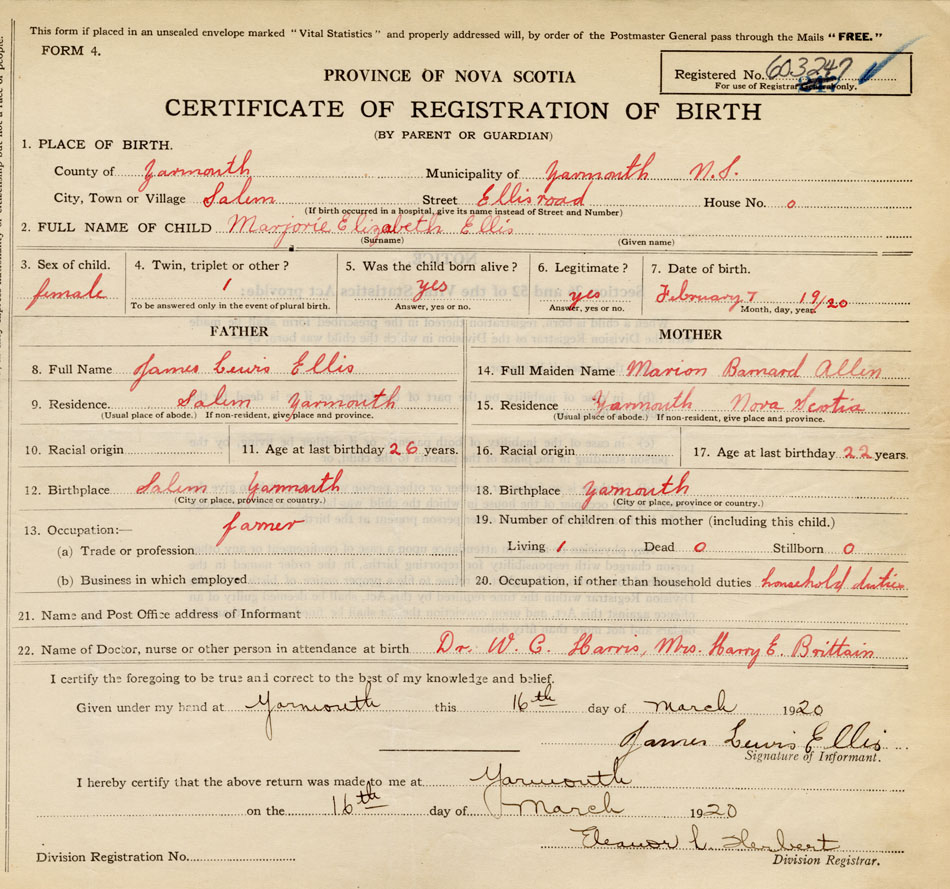 This form if placed in an unsealed envelope marked "Vital Statistics" and properly addressed will, by order of the Postmaster General pass through the Mails "FREE."
FORM 4.
Registered No. 603247
For use of Registrar General only.
PROVINCE OF NOVA SCOTIA
CERTIFICATE OF REGISTRATION OF BIRTH
(BY PARENT OR GUARDIAN)
1. PLACE OF BIRTH.
County of Yarmouth Municipality of Yarmouth N.S.
City, Town or Village Salem Street Ellis road House No. 0
(If birth occurred in a hospital, give its name instead of Street and Number)
2. FULL NAME OF CHILD Marjorie Elizabeth Ellis
(Surname) (Given name)
3. Sex of child. 4. Twin, triplet or other? 5. Was the child born alive? 6. Legitimate? 7. Date of birth.
female 1 yes yes February 7 19/20
To be answered only in the event of plural birth. Answer, yes or no. Answer, yes or no. Month, day, year.
FATHER MOTHER
8. Full Name James Lewis Ellis 14. Full Maiden Name Marion Barnard Allen
9. Residence. Salem Yarmouth 15. Residence Yarmouth Nova Scotia
(Usual place of abode.) If non-resident, give place and province. (Usual place of abode.) If non-resident, give place and province.
10. Racial origin 11. Age at last birthday 26 years. 16. Racial origin 17. Age at last birthday 22 years.
12. Birthplace Salem Yarmouth 18. Birthplace Yarmouth
(City or place, province or country.) (City or place, province or country.)
13. Occupation:— farmer 19. Number of children of this mother (including this child.)
(a) Trade or profession Living 1 Dead 0 Stillborn 0
(b) Business in which employed 20. Occupation, if other than household duties household duties
21. Name and Post Office address of Informant
22. Name of Doctor, nurse or other person in attendance at birth Dr. W. C. Harris, Mrs. Harry E. Brittain
I certify the foregoing to be true and correct to the best of my knowledge and belief.
Given under my hand at Yarmouth this 16th day of March 1920
James Lewis Ellis
Signature of Informant.
I hereby certify that the above return was made to me at Yarmouth
on the 16th day of March 1920
Eleanor L. Herbert
Division Registration No. Division Registrar.